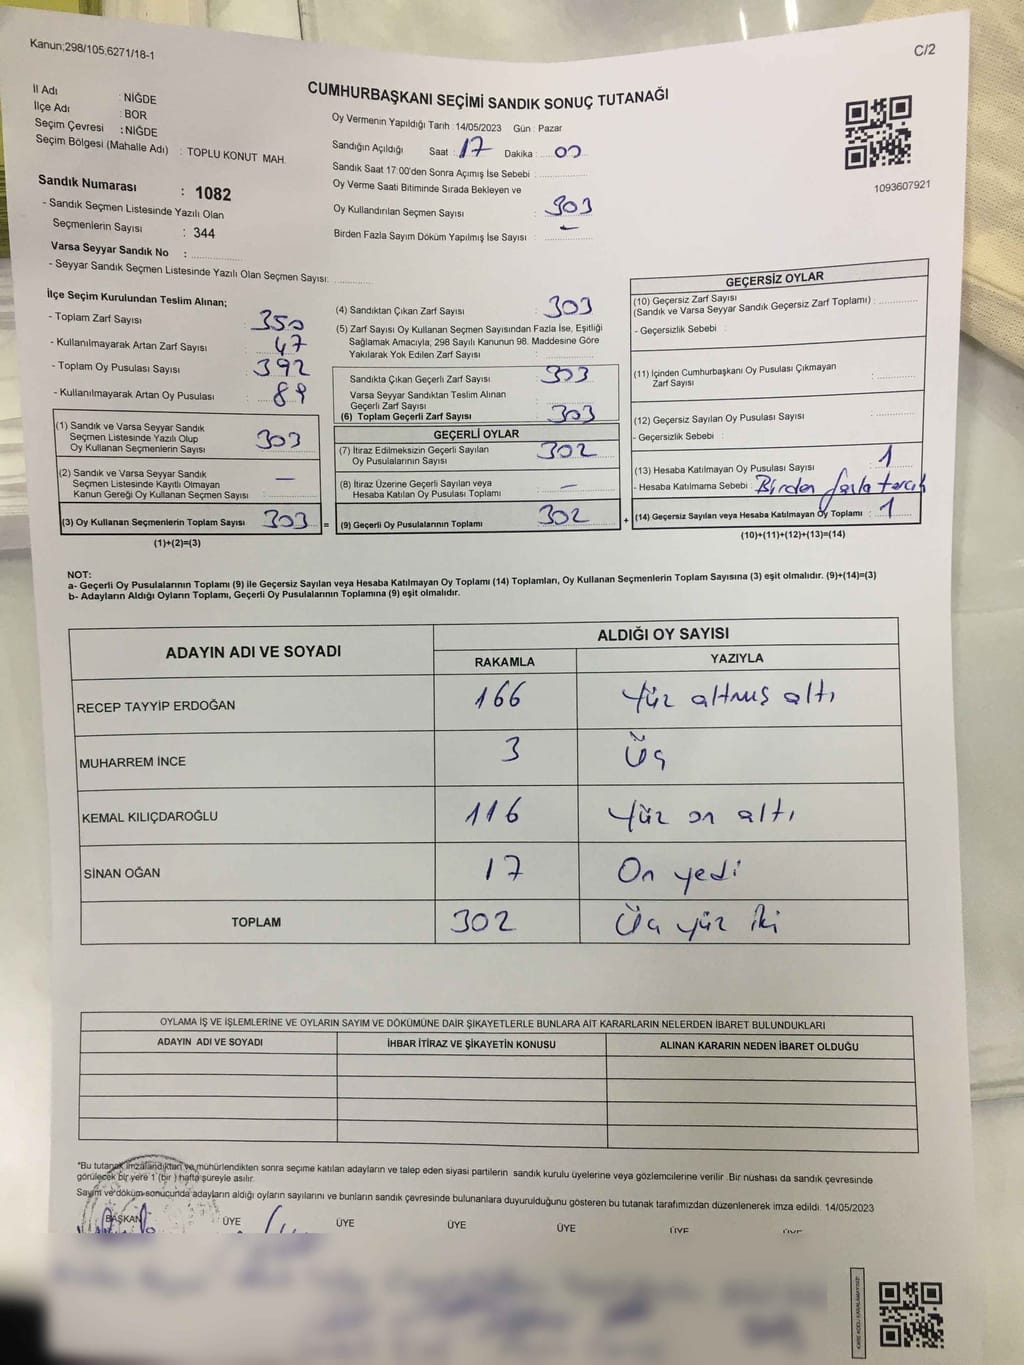 Kanun;298/105,6271/18-1
C/2
CUMHURBAŞKANI SEÇİMİ SANDIK SONUÇ TUTANAĞI
İl Adı : NİĞDE
İlçe Adı : BOR
Seçim Çevresi : NİĞDE
Seçim Bölgesi (Mahalle Adı) : TOPLU KONUT MAH.
Sandık Numarası : 1082
- Sandık Seçmen Listesinde Yazılı Olan
Seçmenlerin Sayısı : 344
Varsa Seyyar Sandık No :
- Seyyar Sandık Seçmen Listesinde Yazılı Olan Seçmen Sayısı:
Oy Vermenin Yapıldığı Tarih :14/05/2023 Gün : Pazar
Sandığın Açıldığı Saat : 17 Dakika : 00
Sandık Saat 17:00'den Sonra Açımış İse Sebebi :
Oy Verme Saati Bitiminde Sırada Bekleyen ve
Oy Kullandırılan Seçmen Sayısı : 303
Birden Fazla Sayım Döküm Yapılmış İse Sayısı : -
1093607921
İlçe Seçim Kurulundan Teslim Alınan;
- Toplam Zarf Sayısı : 350
- Kullanılmayarak Artan Zarf Sayısı : 47
- Toplam Oy Pusulası Sayısı : 392
- Kullanılmayarak Artan Oy Pusulası : 89
(1) Sandık ve Varsa Seyyar Sandık
Seçmen Listesinde Yazılı Olup
Oy Kullanan Seçmenlerin Sayısı : 303
(2) Sandık ve Varsa Seyyar Sandık
Seçmen Listesinde Kayıtlı Olmayan
Kanun Gereği Oy Kullanan Seçmen Sayısı : -
(3) Oy Kullanan Seçmenlerin Toplam Sayısı : 303 =
(1)+(2)=(3)
(4) Sandıktan Çıkan Zarf Sayısı : 303
(5) Zarf Sayısı Oy Kullanan Seçmen Sayısından Fazla İse, Eşitliği
Sağlamak Amacıyla; 298 Sayılı Kanunun 98. Maddesine Göre
Yakılarak Yok Edilen Zarf Sayısı :
Sandıkta Çıkan Geçerli Zarf Sayısı : 303
Varsa Seyyar Sandıktan Teslim Alınan
Geçerli Zarf Sayısı :
(6) Toplam Geçerli Zarf Sayısı : 303
GEÇERLİ OYLAR
(7) İtiraz Edilmeksizin Geçerli Sayılan
Oy Pusulalarının Sayısı : 302
(8) İtiraz Üzerine Geçerli Sayılan veya
Hesaba Katılan Oy Pusulası Toplamı : -
(9) Geçerli Oy Pusulalarının Toplamı : 302 +
GEÇERSİZ OYLAR
(10) Geçersiz Zarf Sayısı
(Sandık ve Varsa Seyyar Sandık Geçersiz Zarf Toplamı) :
- Geçersizlik Sebebi :
(11) İçinden Cumhurbaşkanı Oy Pusulası Çıkmayan
Zarf Sayısı :
(12) Geçersiz Sayılan Oy Pusulası Sayısı :
- Geçersizlik Sebebi :
(13) Hesaba Katılmayan Oy Pusulası Sayısı : 1
- Hesaba Katılmama Sebebi : Birden fazla tercih
(14) Geçersiz Sayılan veya Hesaba Katılmayan Oy Toplamı : 1
(10)+(11)+(12)+(13)=(14)
NOT:
a- Geçerli Oy Pusulalarının Toplamı (9) ile Geçersiz Sayılan veya Hesaba Katılmayan Oy Toplamı (14) Toplamları, Oy Kullanan Seçmenlerin Toplam Sayısına (3) eşit olmalıdır. (9)+(14)=(3)
b- Adayların Aldığı Oyların Toplamı, Geçerli Oy Pusulalarının Toplamına (9) eşit olmalıdır.
ADAYIN ADI VE SOYADI ALDIĞI OY SAYISI
RAKAMLA YAZIYLA
RECEP TAYYİP ERDOĞAN 166 Yüz altmış altı
MUHARREM İNCE 3 Üç
KEMAL KILIÇDAROĞLU 116 Yüz on altı
SİNAN OĞAN 17 On yedi
TOPLAM 302 Üç yüz iki
OYLAMA İŞ VE İŞLEMLERİNE VE OYLARIN SAYIM VE DÖKÜMÜNE DAİR ŞİKAYETLERLE BUNLARA AİT KARARLARIN NELERDEN İBARET BULUNDUKLARI
ADAYIN ADI VE SOYADI İHBAR İTİRAZ VE ŞİKAYETİN KONUSU ALINAN KARARIN NEDEN İBARET OLDUĞU
"Bu tutanak imzalandıktan ve mühürlendikten sonra seçime katılan adayların ve talep eden siyasi partilerin sandık kurulu üyelerine veya gözlemcilerine verilir. Bir nüshası da sandık çevresinde
görülecek bir yere 1 (bir ) hafta süreyle asılır.
Sayım ve döküm sonucunda adayların aldığı oyların sayılarını ve bunların sandık çevresinde bulunanlara duyurulduğunu gösteren bu tutanak tarafımızdan düzenlenerek imza edildi. 14/05/2023
BAŞKAN ÜYE ÜYE ÜYE ÜYE ÜYE ÜYE